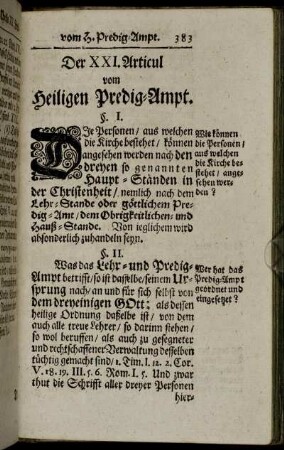 vom H. Predig-Ampt. 383
Der XXI. Articul
vom
Heiligen Predig-Ampt.
§. I.
DIe Personen/ aus welchen
die Kirche bestehet/ können
angesehen werden nach den
dreyen so genannten
Haupt-Ständen in
der Christenheit/ nemlich nach dem
Lehr-Stande oder göttlichem Pre-
dig-Amt/ dem Obrigkeitlichen- und
Hauß-Stande. Von ieglichem wird
absonderlich zuhandeln seyn.
Wie können
die Personen/
aus welchen
die Kirche be-
stehet/ ange-
sehen wer-
den?
§. II.
Was das Lehr- und Predig-
Ampt betrifft/ so ist dasselbe/ seinem Ur-
sprung nach/ an und für sich selbst von
dem dreyeinigen GOtt: als dessen
heilige Ordnung daßelbe ist/ von dem
auch alle treue Lehrer/ so darinn stehen/
so wol beruffen/ als auch zu gesegneter
und rechtschaffener Verwaltung desselben
tüchtig gemacht sind/ 1. Tim. I. 12. 2. Cor.
V. 18. 19. III. 5. 6. Rom. I. 5. Und zwar
thut die Schrifft aller dreyer Personen
hier-
Wer hat das
Predig-Ampt
geordnet und
eingesetzt?